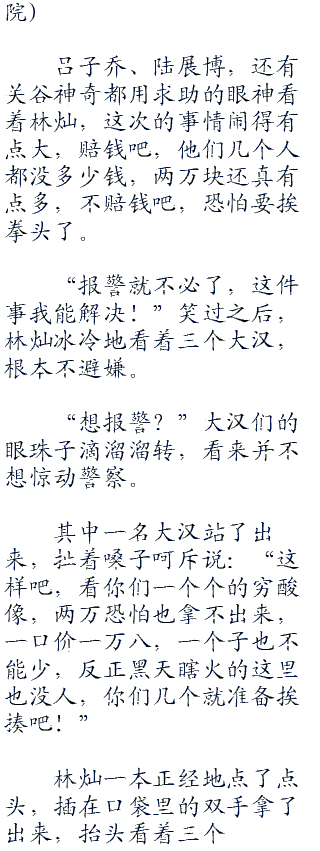 院）
吕子乔、陆展博，还有
关谷神奇都用求助的眼神看
着林灿，这次的事情闹得有
点大，赔钱吧，他们几个人
都没多少钱，两万块还真有
点多，不赔钱吧，恐怕要挨
拳头了。
“报警就不必了，这件
事我能解决！”笑过之后，
林灿冰冷地看着三个大汉，
根本不避嫌。
“想报警？”大汉们的
眼珠子滴溜溜转，看来并不
想惊动警察。
其中一名大汉站了出
来，扯着嗓子呵斥说：“这
样吧，看你们一个个的穷酸
像，两万恐怕也拿不出来，
一口价一万八，一个子也不
能少，反正黑天瞎火的这里
也没人，你们几个就准备挨
揍吧！”
林灿一本正经地点了点
头，插在口袋里的双手拿了
出来，抬头看着三个